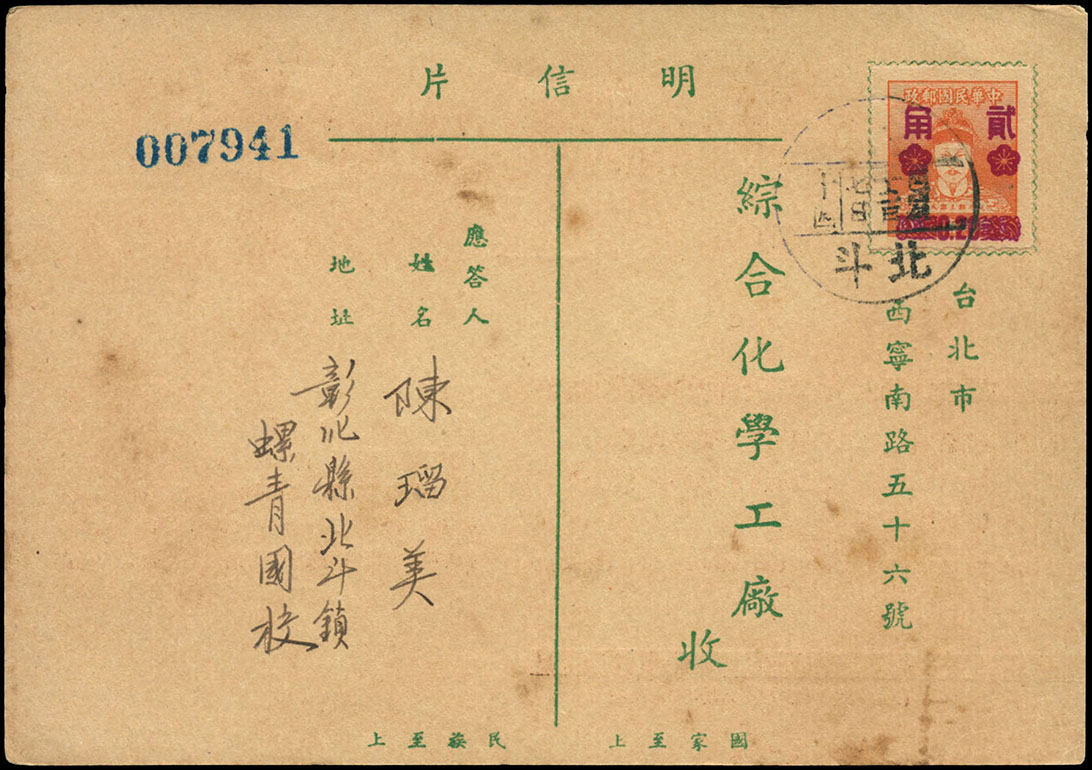 明信片
007941
中華民國郵政
貳角
0.20
北斗
台北市
西寧南路五十六號
綜合化學工廠
收
應答人
姓名
陳瑠美
地址
彰化縣北斗鎮
螺青國校
國家至上
民族至上